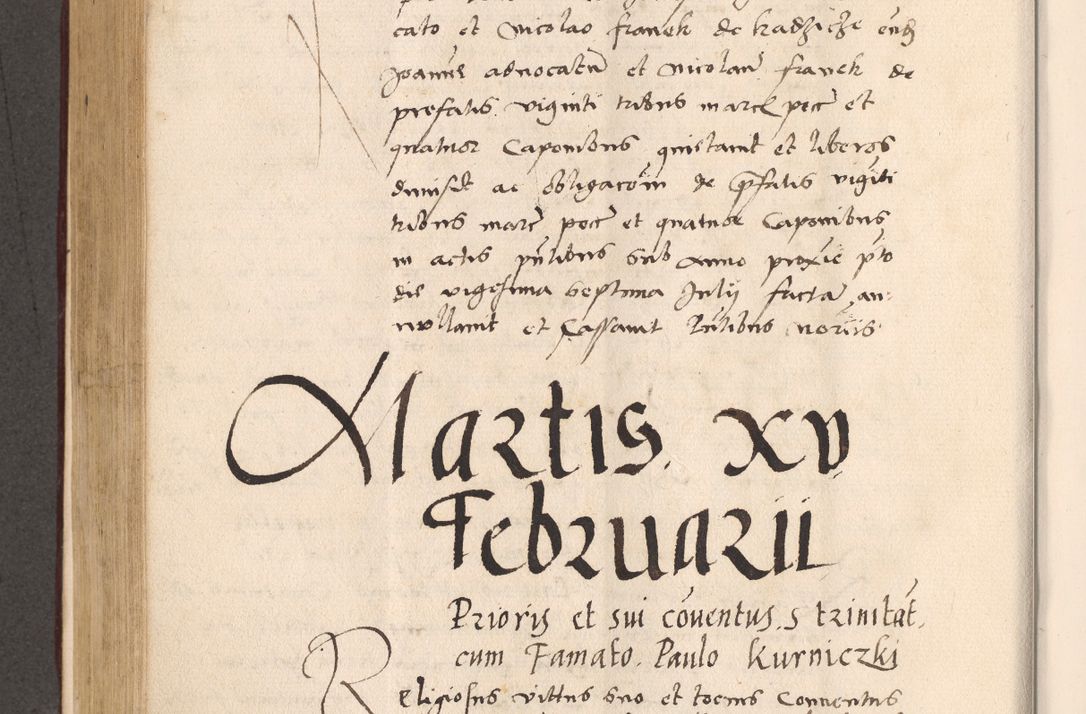 cato et Nicolao franek de kadzicze eund
Joannē advocatū et Nicolaū franek de
prefatis viginti tribus marc pecc et
quatuor Caponibus quietavit et liberos
dimisit ac obligacōm de p̄fatis vigīti
tribus marc pecc et quatuor Caponibus
in actis pn̄tibus sub Anno proxīe p̄to
die vigesima septima Julij factā an:
nullavit et Cassavit
Martis. xv
Februarii
Prioris et sui cōuentus. s trinitat.
cum Famato. Paulo Kurniczki
Religiosus suo et tocius Conventus